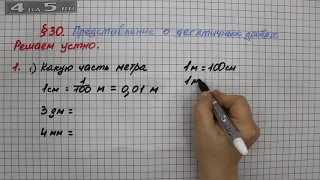 4 на 5 ru
§30. Представление о десятичных дробях.
Решаем устно.
1. 1) Какую часть метра
1 см = 1/100 м = 0,01 м
3 дм =
4 мм =
1 м = 100 см
1 м